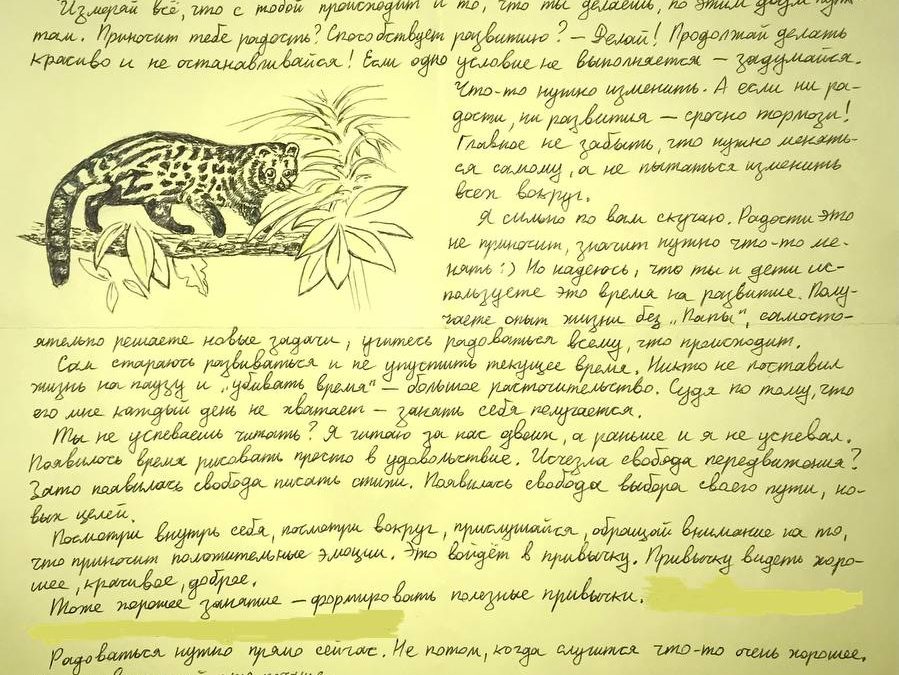 Измеряй всё, что с тобой происходит и то, что ты делаешь, по этим двум пунк-
там. Приносит тебе радость? Способствует развитию? – Делай! Продолжай делать
красиво и не останавливайся! Если одно условие не выполняется – задумайся.
Что-то нужно изменить. А если ни ра-
дости, ни развития – срочно тормози!
Главное не забыть, что нужно менять-
ся самому, а не пытаться изменить
всех вокруг.
Я сильно по вам скучаю. Радости это
не приносит, значит нужно что-то ме-
нять :) Но надеюсь, что ты и дети ис-
пользуете это время на развитие. Полу-
чаете опыт жизни без „Папы", самосто-
ятельно решаете новые задачи, учитесь радоваться всему, что происходит.
Сам стараюсь развиваться и не упустить текущее время. Никто не поставил
жизнь на паузу и „убивать время" – большое расточительство. Судя по тому, что
его мне каждый день не хватает – занять себя получается.
Ты не успеваешь читать? Я читаю за нас двоих, а раньше и я не успевал.
Появилось время рисовать просто в удовольствие. Исчезла свобода передвижения?
Зато появилась свобода писать стихи. Появилась свобода выбора своего пути, но-
вых целей.
Посмотри внутрь себя, посмотри вокруг, прислушайся, обращай внимание на то,
что приносит положительные эмоции. Это войдёт в привычку. Привычку видеть хоро-
шее, красивое, доброе.
Тоже хорошее занятие – формировать полезные привычки.
Радоваться нужно прямо сейчас. Не потом, когда случится что-то очень хорошее.